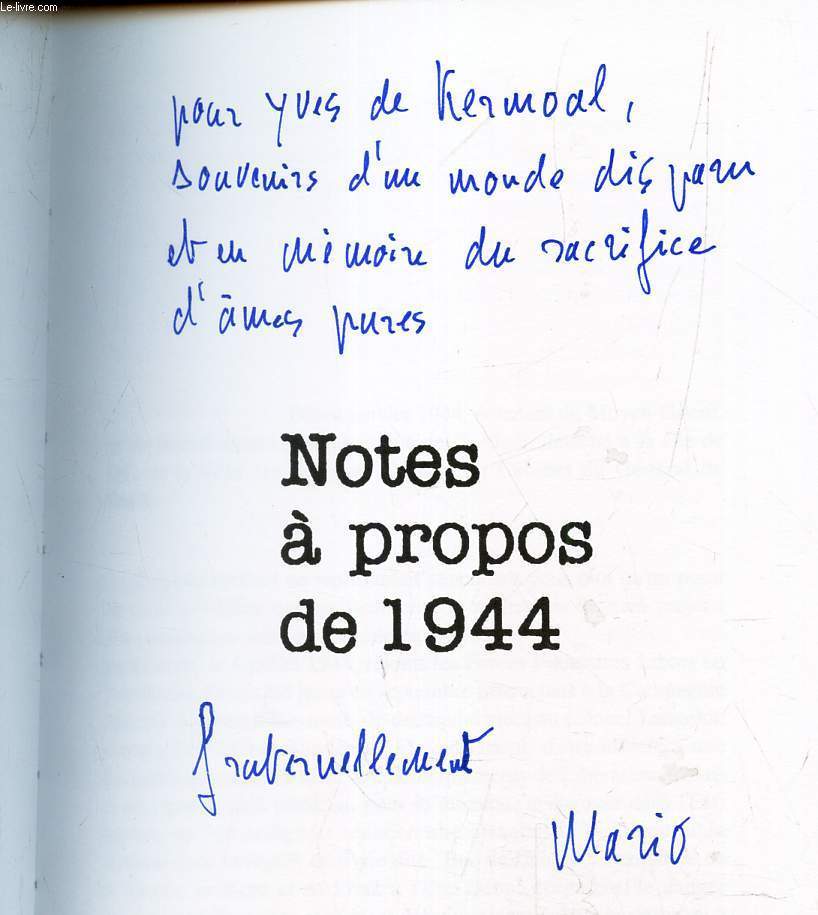 Le-livre.com
pour Yves de Kermoal,
souvenirs d'un monde disparu
et en mémoire du sacrifice
d'âmes pures
Notes
à propos
de 1944
fraternellement
Mario